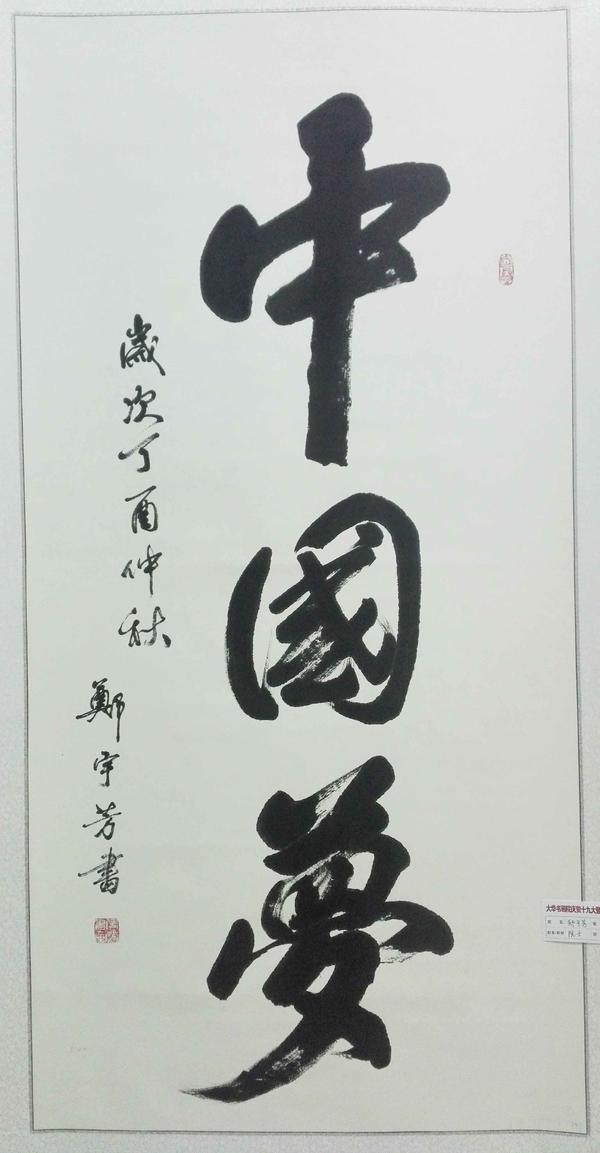 中國夢
歲次丁酉仲秋
鄭宇芳書
大华书画院庆贺十九大暨